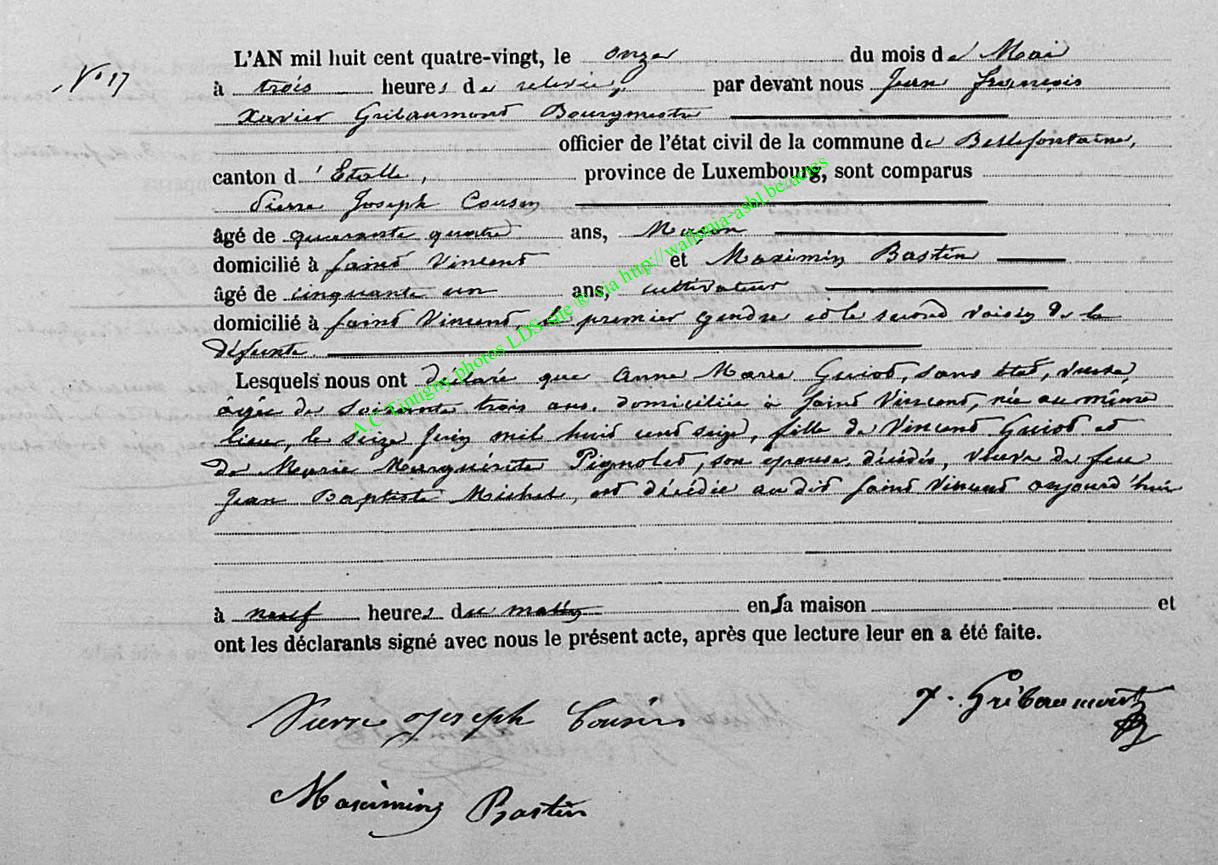 N° 17
L'AN mil huit cent quatre-vingt, le onze du mois de Mai
à trois heures de relevée, par devant nous Jean François
Xavier Gribaumont Bourgmestre
officier de l'état civil de la commune de Bellefontaine,
canton d'Etalle, province de Luxembourg, sont comparus
Pierre Joseph Cousin
âgé de quarante quatre ans, Maçon
domicilié à Saint Vincent et Maximin Bastin
âgé de cinquante un ans, cultivateur
domicilié à Saint Vincent, le premier gendre et le second voisin de la
défunte.
Lesquels nous ont déclaré que Anne Marie Guiot, sans état, veuve,
âgée de soixante trois ans, domiciliée à Saint Vincent, née au même
lieu, le seize Juin mil huit cent seize, fille de Vincent Guiot et
de Marie Marguérite Pignolet, son épouse, décédés, veuve de feu
Jean Baptiste Michel, est décédée audit Saint Vincent aujourd'hui
à neuf heures du matin en sa maison et
ont les déclarants signé avec nous le présent acte, après que lecture leur en a été faite.
Pierre Joseph Cousin
Gribaumont
Maximin Bastin
A.C. Tintigny photos LDS site ® via http://wallonia-asbl.be/actes